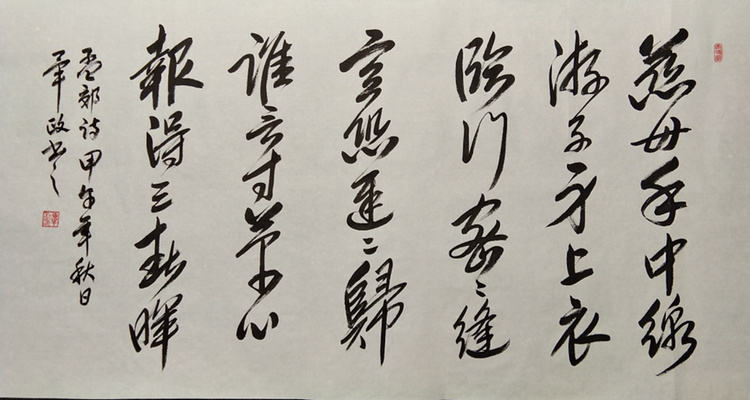 慈母手中線
游子身上衣
臨行密〻縫
意恐遲〻歸
誰言寸草心
報得三春暉
孟郊诗甲午年秋日
政书之